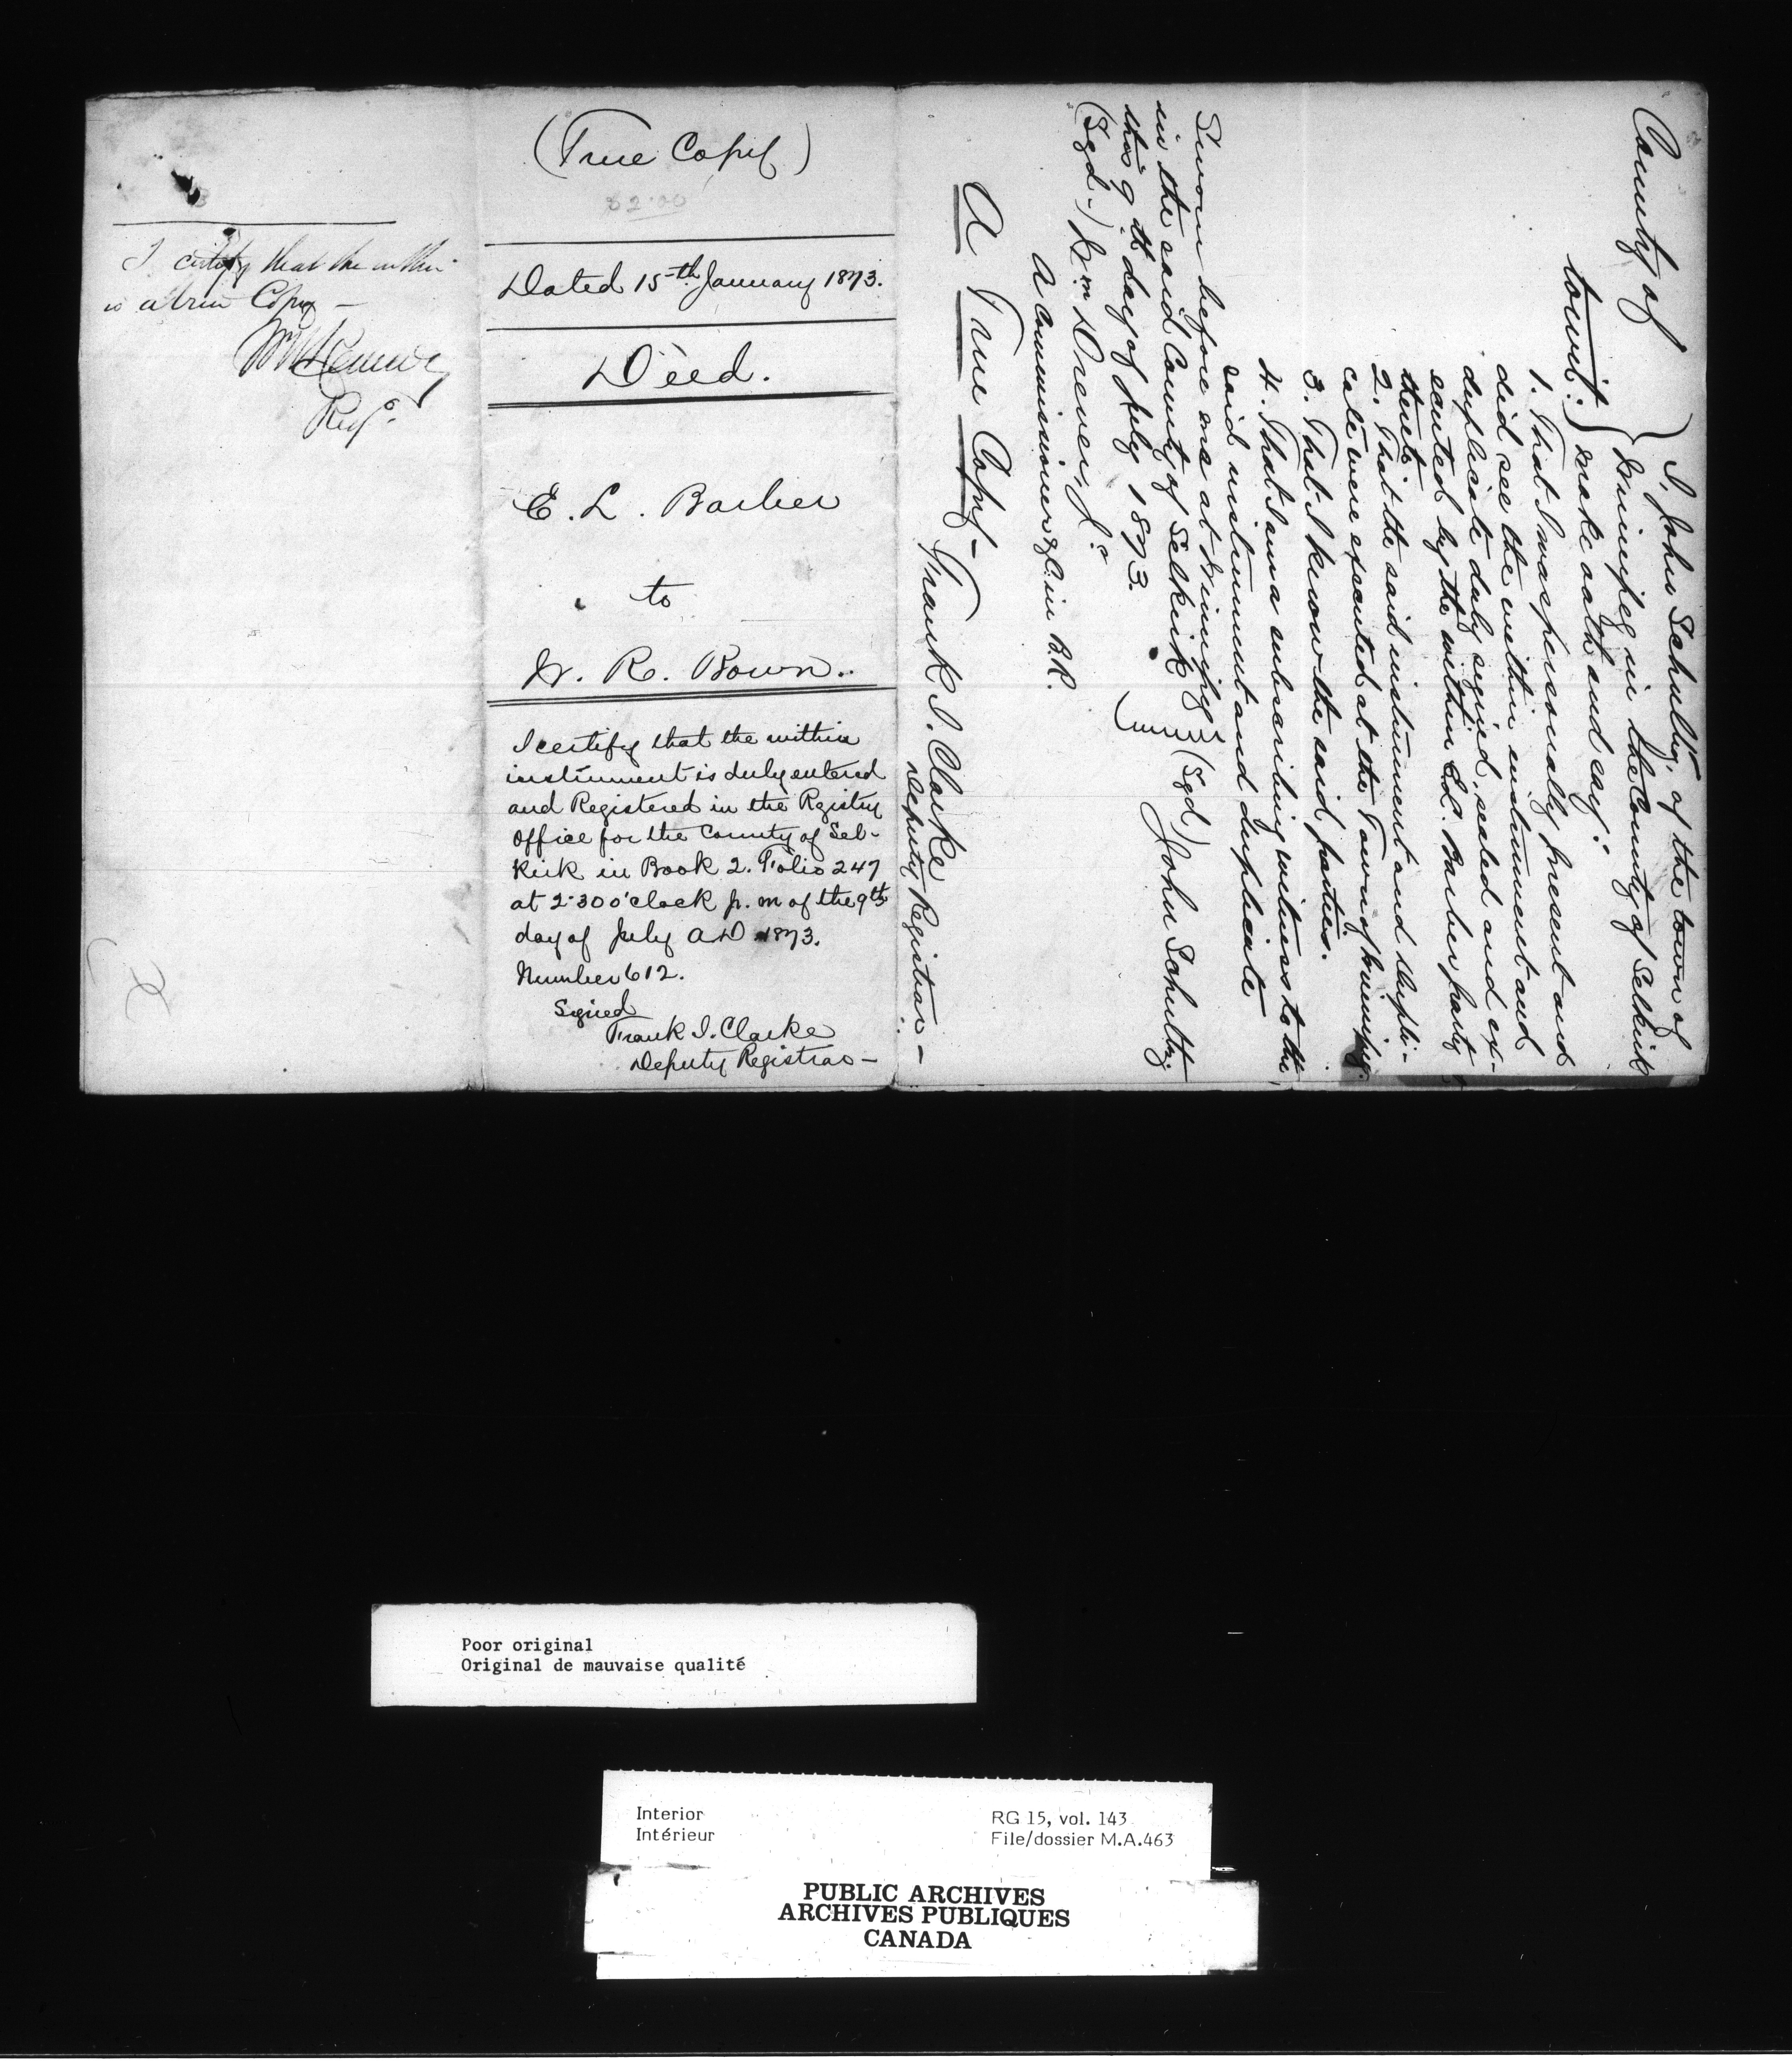 I certify that the within
is a true Copy —
Regr.
(True Copy)
$2.00
Dated 15th January 1873.
Deed.
E. L. Barber
to
W. R. Bown.
I certify that the within
instrument is duly entered
and Registered in the Rgistry
Office for the County of Sel-
kirk in Book 2. Folio 247
at 2.30 o'clock p.m of the 9th
day of July AD 1873.
Number 612.
Signed
Frank I. Clarke
Deputy Registrar —
County of
towit:
I, John Schultz, of the town of
Winnipeg in the County of Selkirk
make oath and say:
1. That I was personally present and
did see the within instrument and
duplicate duly signed, sealed and ex-
ecuted by the within Ed. Barber party
thereto
2. That the said instrument and dupli-
cate were executed at the Town of Winnipeg.
3. That I know the said parties.
4. That I am a subscribing witness to the
said instrument and duplicate
Sworn before me at Winnipeg
in the said County of Selkirk
this 9th day of July 1873.
(Sgd) John Schultz
(Sgd.) Wm Drever, Jr
A Commissioner &c in B.R.
A True Copy —
Frank I. Clarke
Deputy Registrar. —
Poor original
Original de mauvaise qualité
Interior
Intérieur
RG 15, vol. 143
File/dossier M.A.463
PUBLIC ARCHIVES
ARCHIVES PUBLIQUES
CANADA